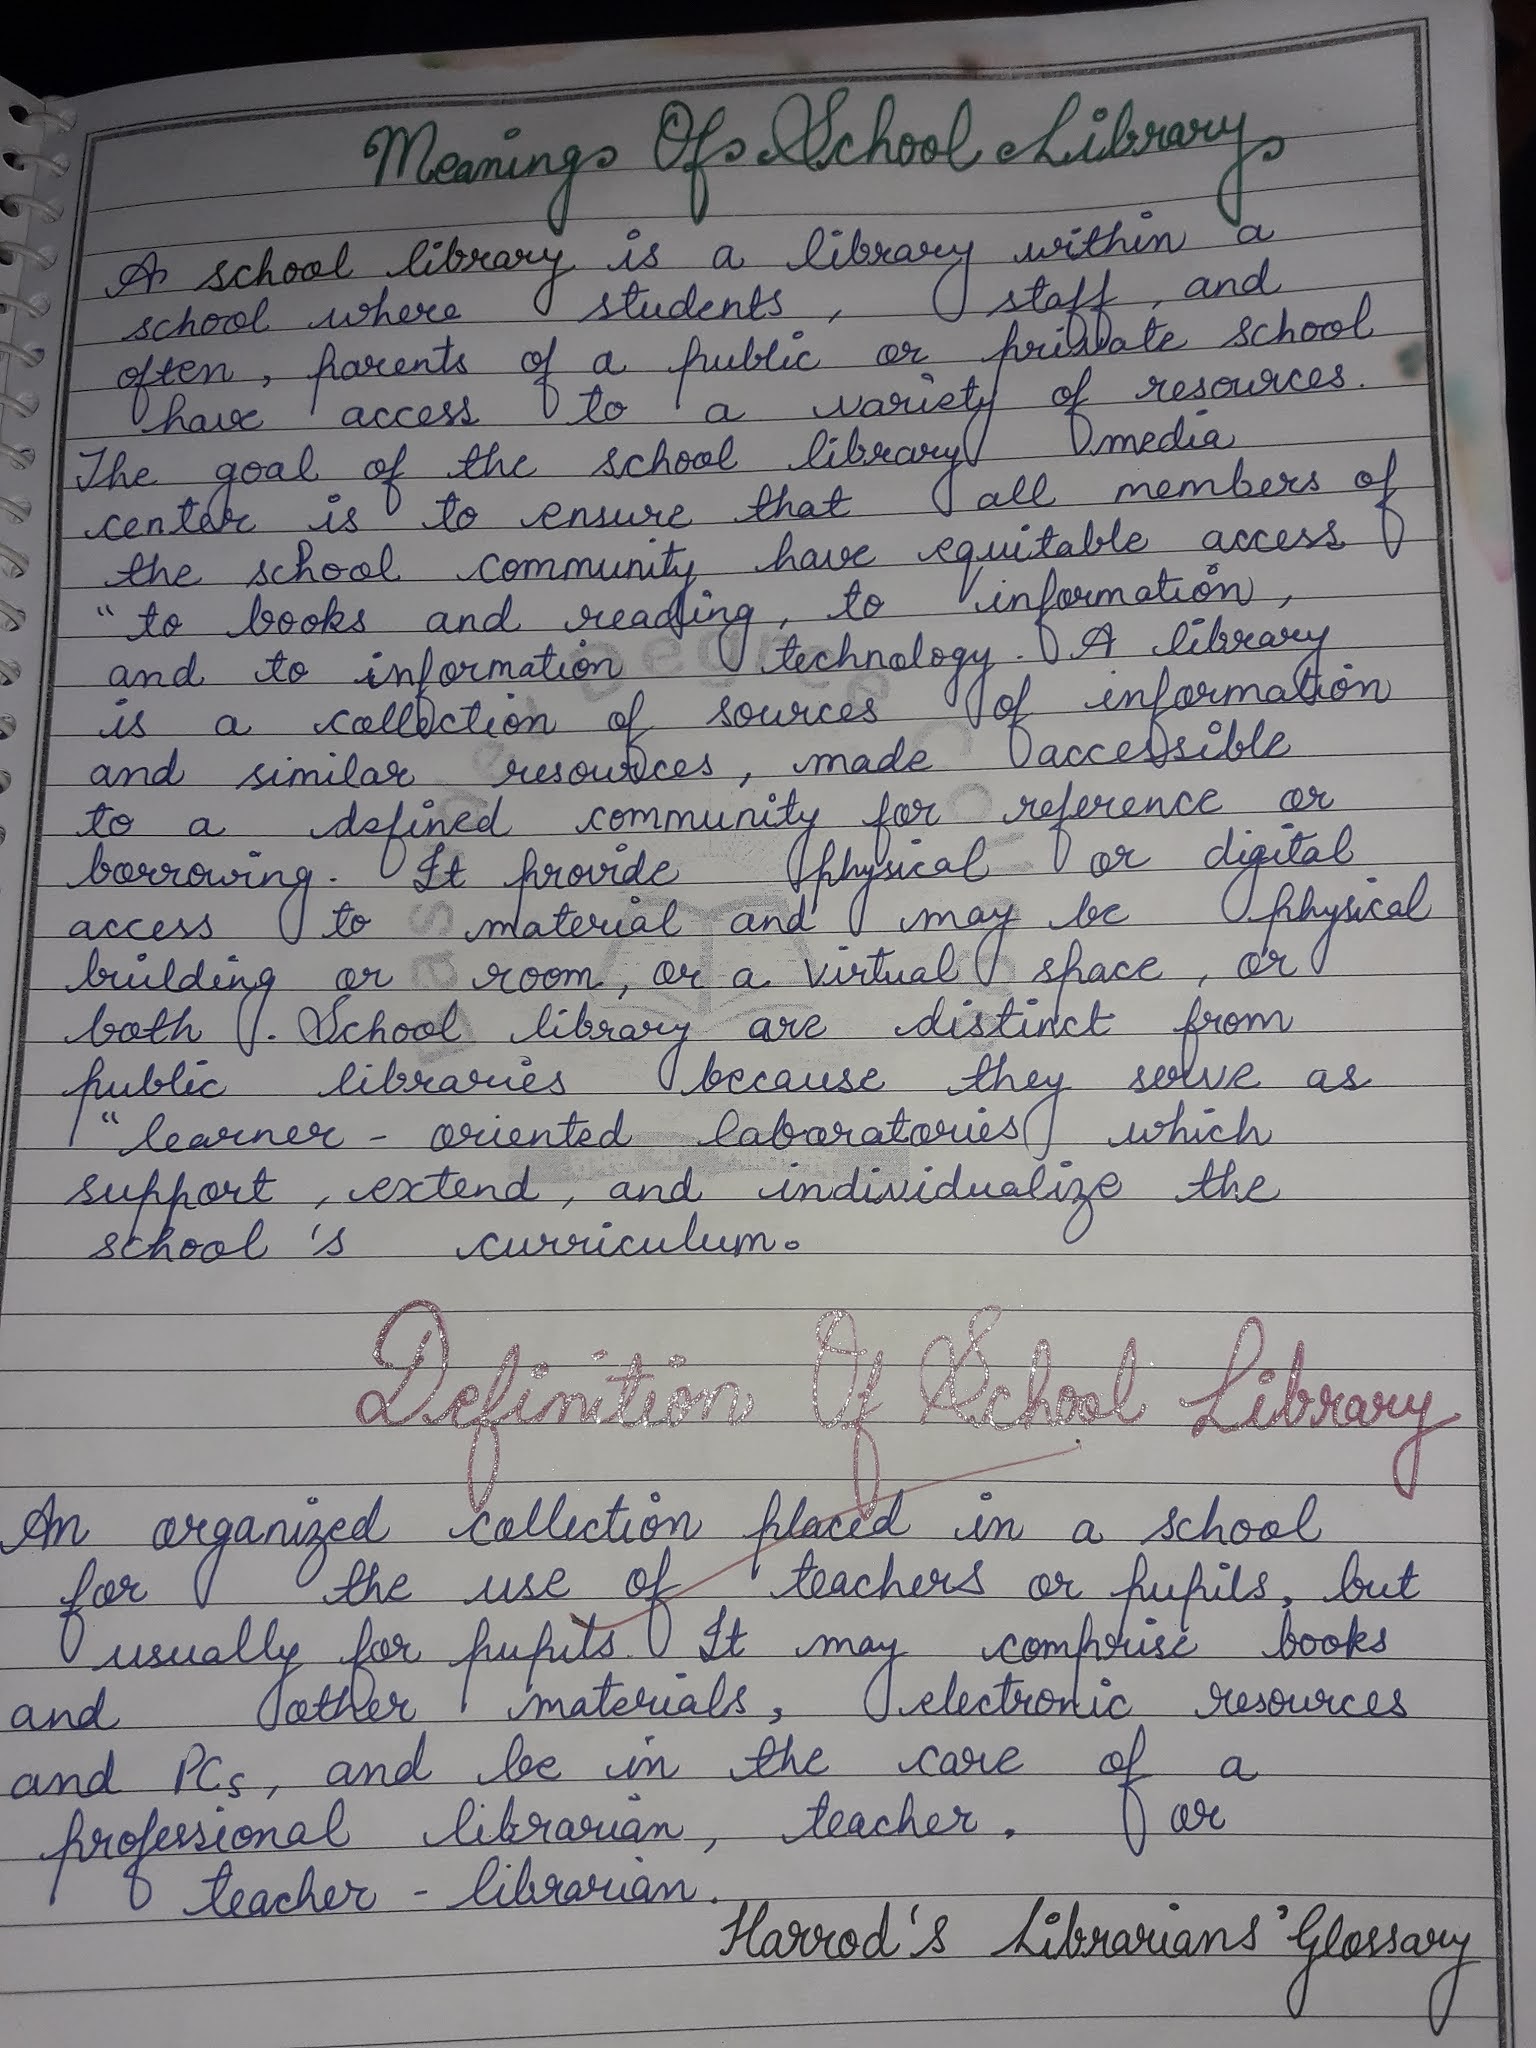 Meaning Of School Library
A school library is a library within a
school where students, staff, and
often, parents of a public or private school
have access to a variety of resources.
The goal of the school library media
center is to ensure that all members of
the school community have equitable access
"to books and reading, to information,
and to information technology. A library
is a collection of sources of information
and similar resources, made accessible
to a defined community for reference or
borrowing. It provide physical or digital
access to material and may be physical
building or room, or a virtual space, or
both. School library are distinct from
public libraries because they serve as
"learner-oriented laboratories which
support, extend, and individualize the
school's curriculum.
Definition Of School Library
An organized collection placed in a school
for the use of teachers or pupils, but
usually for pupils. It may comprise books
and other materials, electronic resources
and PCs, and be in the care of a
professional librarian, teacher, or
teacher-librarian.
Harrod's Librarians' Glossary